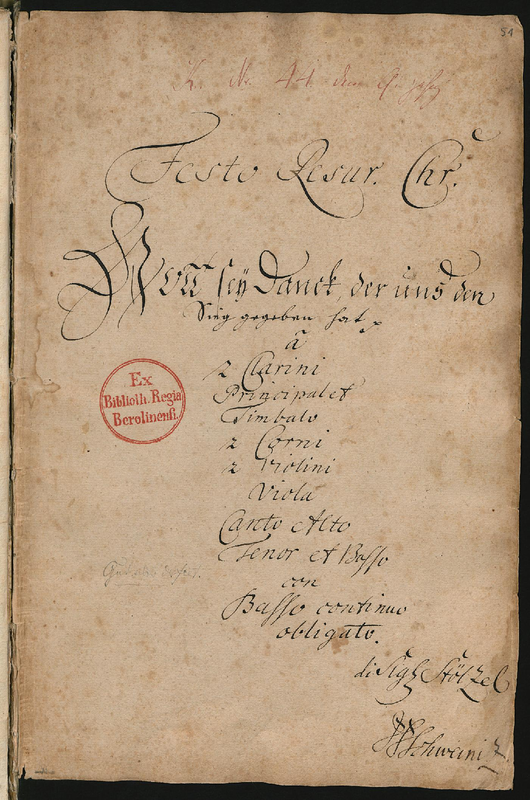 54
No. 44
Festo Resur. Chr.
Gott sey Danck, der uns den
Sieg gegeben hat
à
2 Clarini
Principal et
Timbalo
2 Corni
2 Violini
Viola
Canto Alto
Tenor et Basso
con
Basso continuo
obligato.
di Sigl. Stölzel
Ex
Biblioth. Regia
Berolinensi.